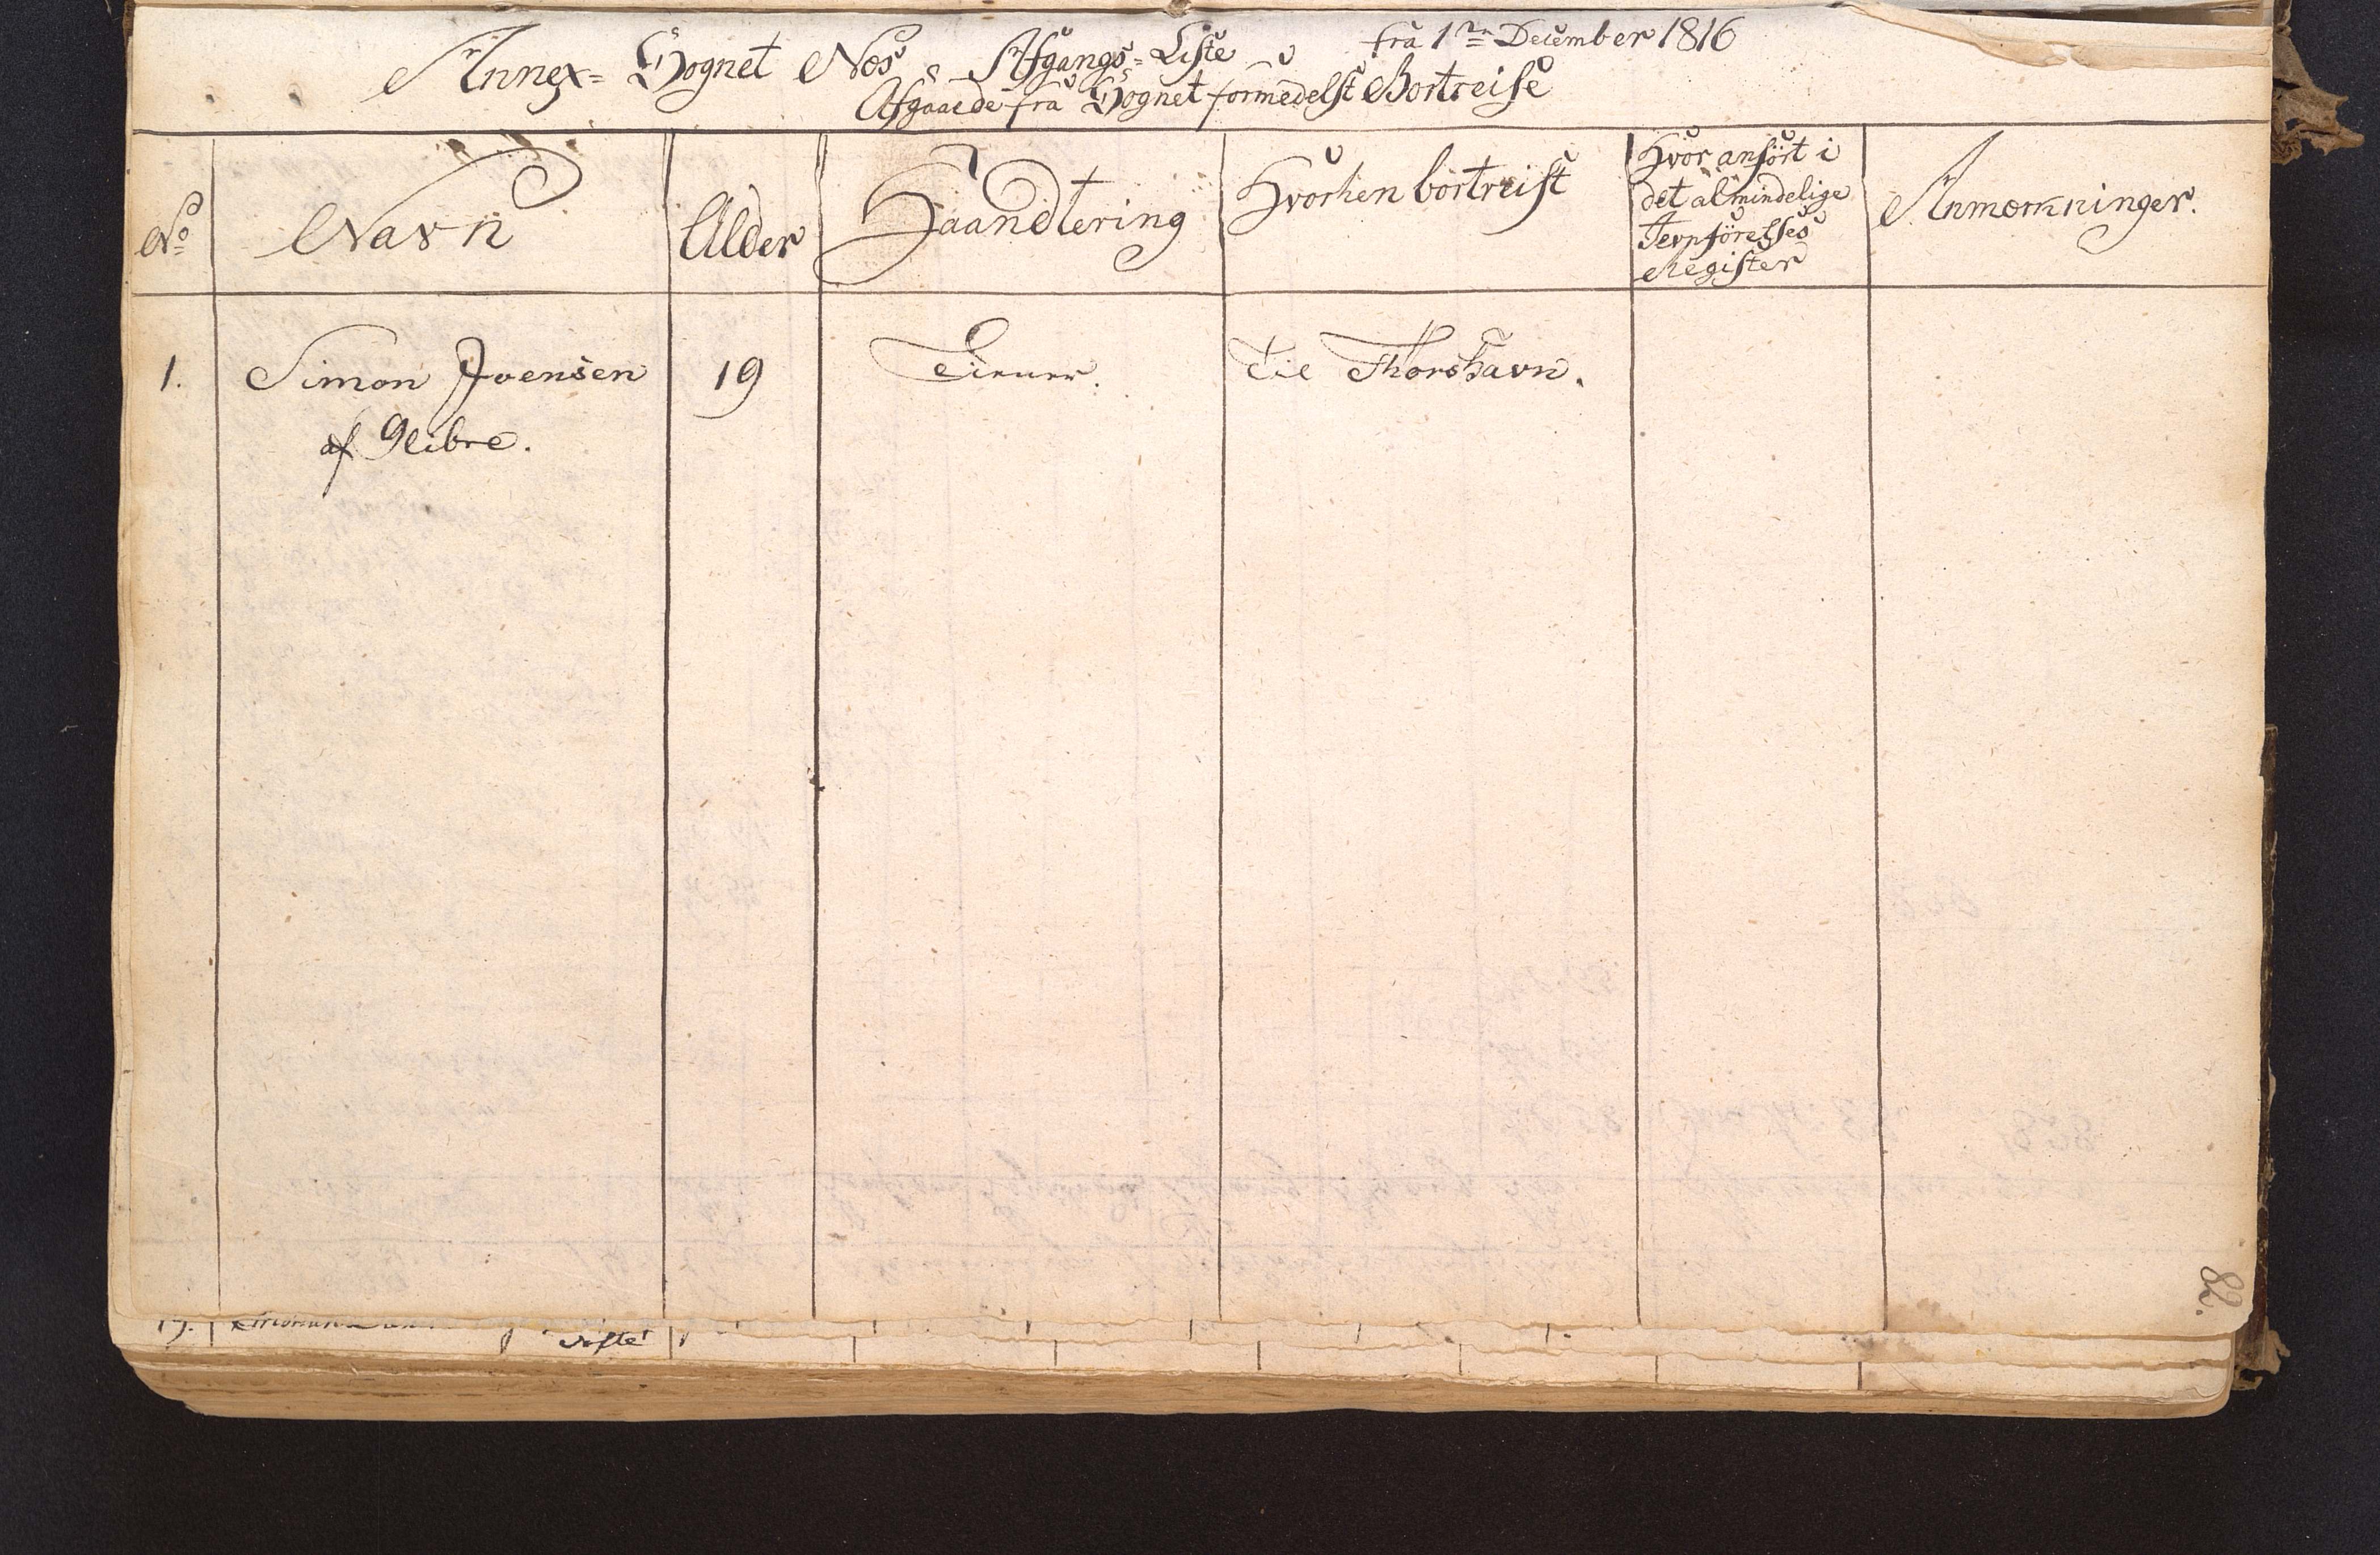 Annex=Sognet Næs Afgangs=Liste fra 1te December 1816
Afgaaede fra Sognet formedelst Bortreise
No
Navn
Alder
Haandtering
Hvorhen bortreist
Hvor anfört i
det almindelige
Jevnförelses
Register
Anmærkninger.
1. Simon Joensen 19 Tiener. til Thorshavn.
af Glibre.
82.